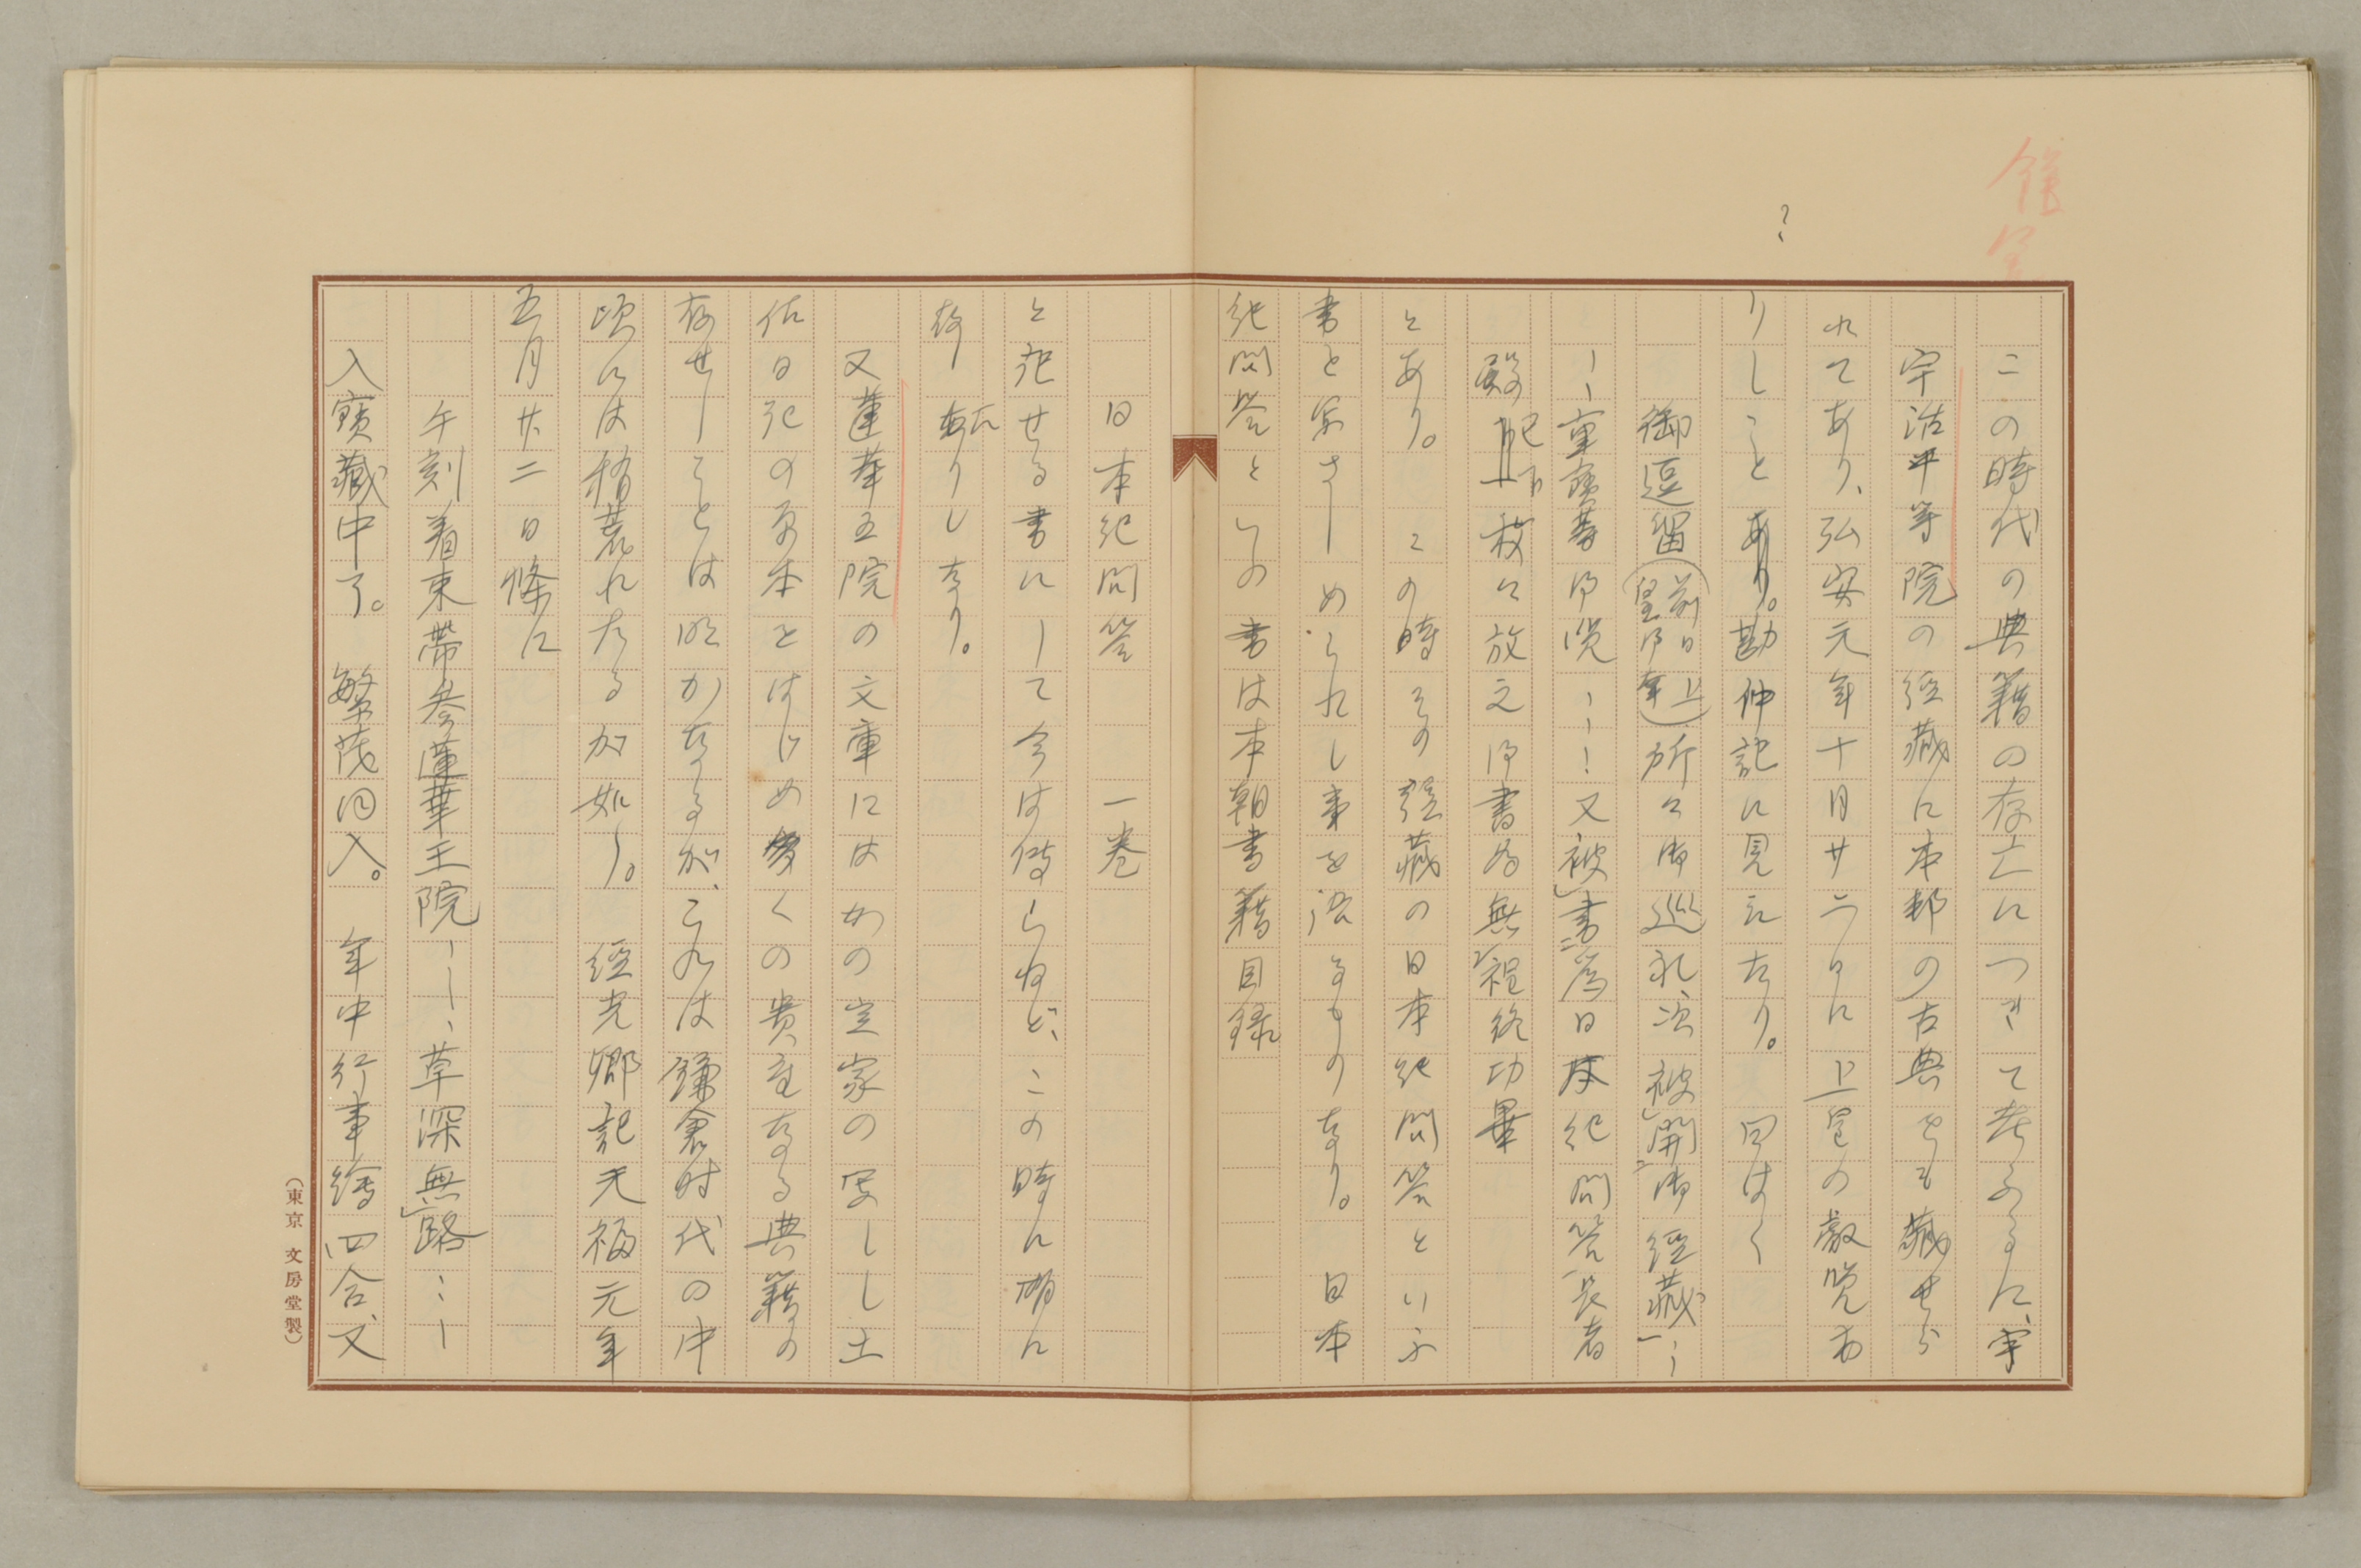 この時代の典籍の存亡につきて考ふるに、宇
宇治平等院の経藏に本邦の古典をも藏せら
れてあり、弘安元年十月廿二日に上皇の叡覧あ
りしことあり。勘仲記に見えたり。 曰はく
御逗留(前日上皇御幸)所々御巡礼、次被開御経藏…
重寶等御覧…又被書爲日本紀問答長者
殿記下被放之御書為無裡終功畢
とあり。 この時その経藏の日本紀問答といふ
書を写さしめられし事を語るものなり。 日本
紀問答といふ書は本朝書籍目録
日本紀問答 一巻
と記せる書にして今は傳らねど、この時に确に
存したりしなり。
又蓮華王院の文庫にはかの定家の写しし土
佐日記の原本をはじめ多くの貴重なる典籍の
存せしことは明かなるが、これは鎌倉時代の中
頃には稍荒れたるが如し。 経光卿記天福元年
五月廿二日條に
午刻着束帶参蓮華王院……、草深無路……
入寶藏中了。 繁茂同入。 年中行事繪四合、又
?
(東京 文房堂製)